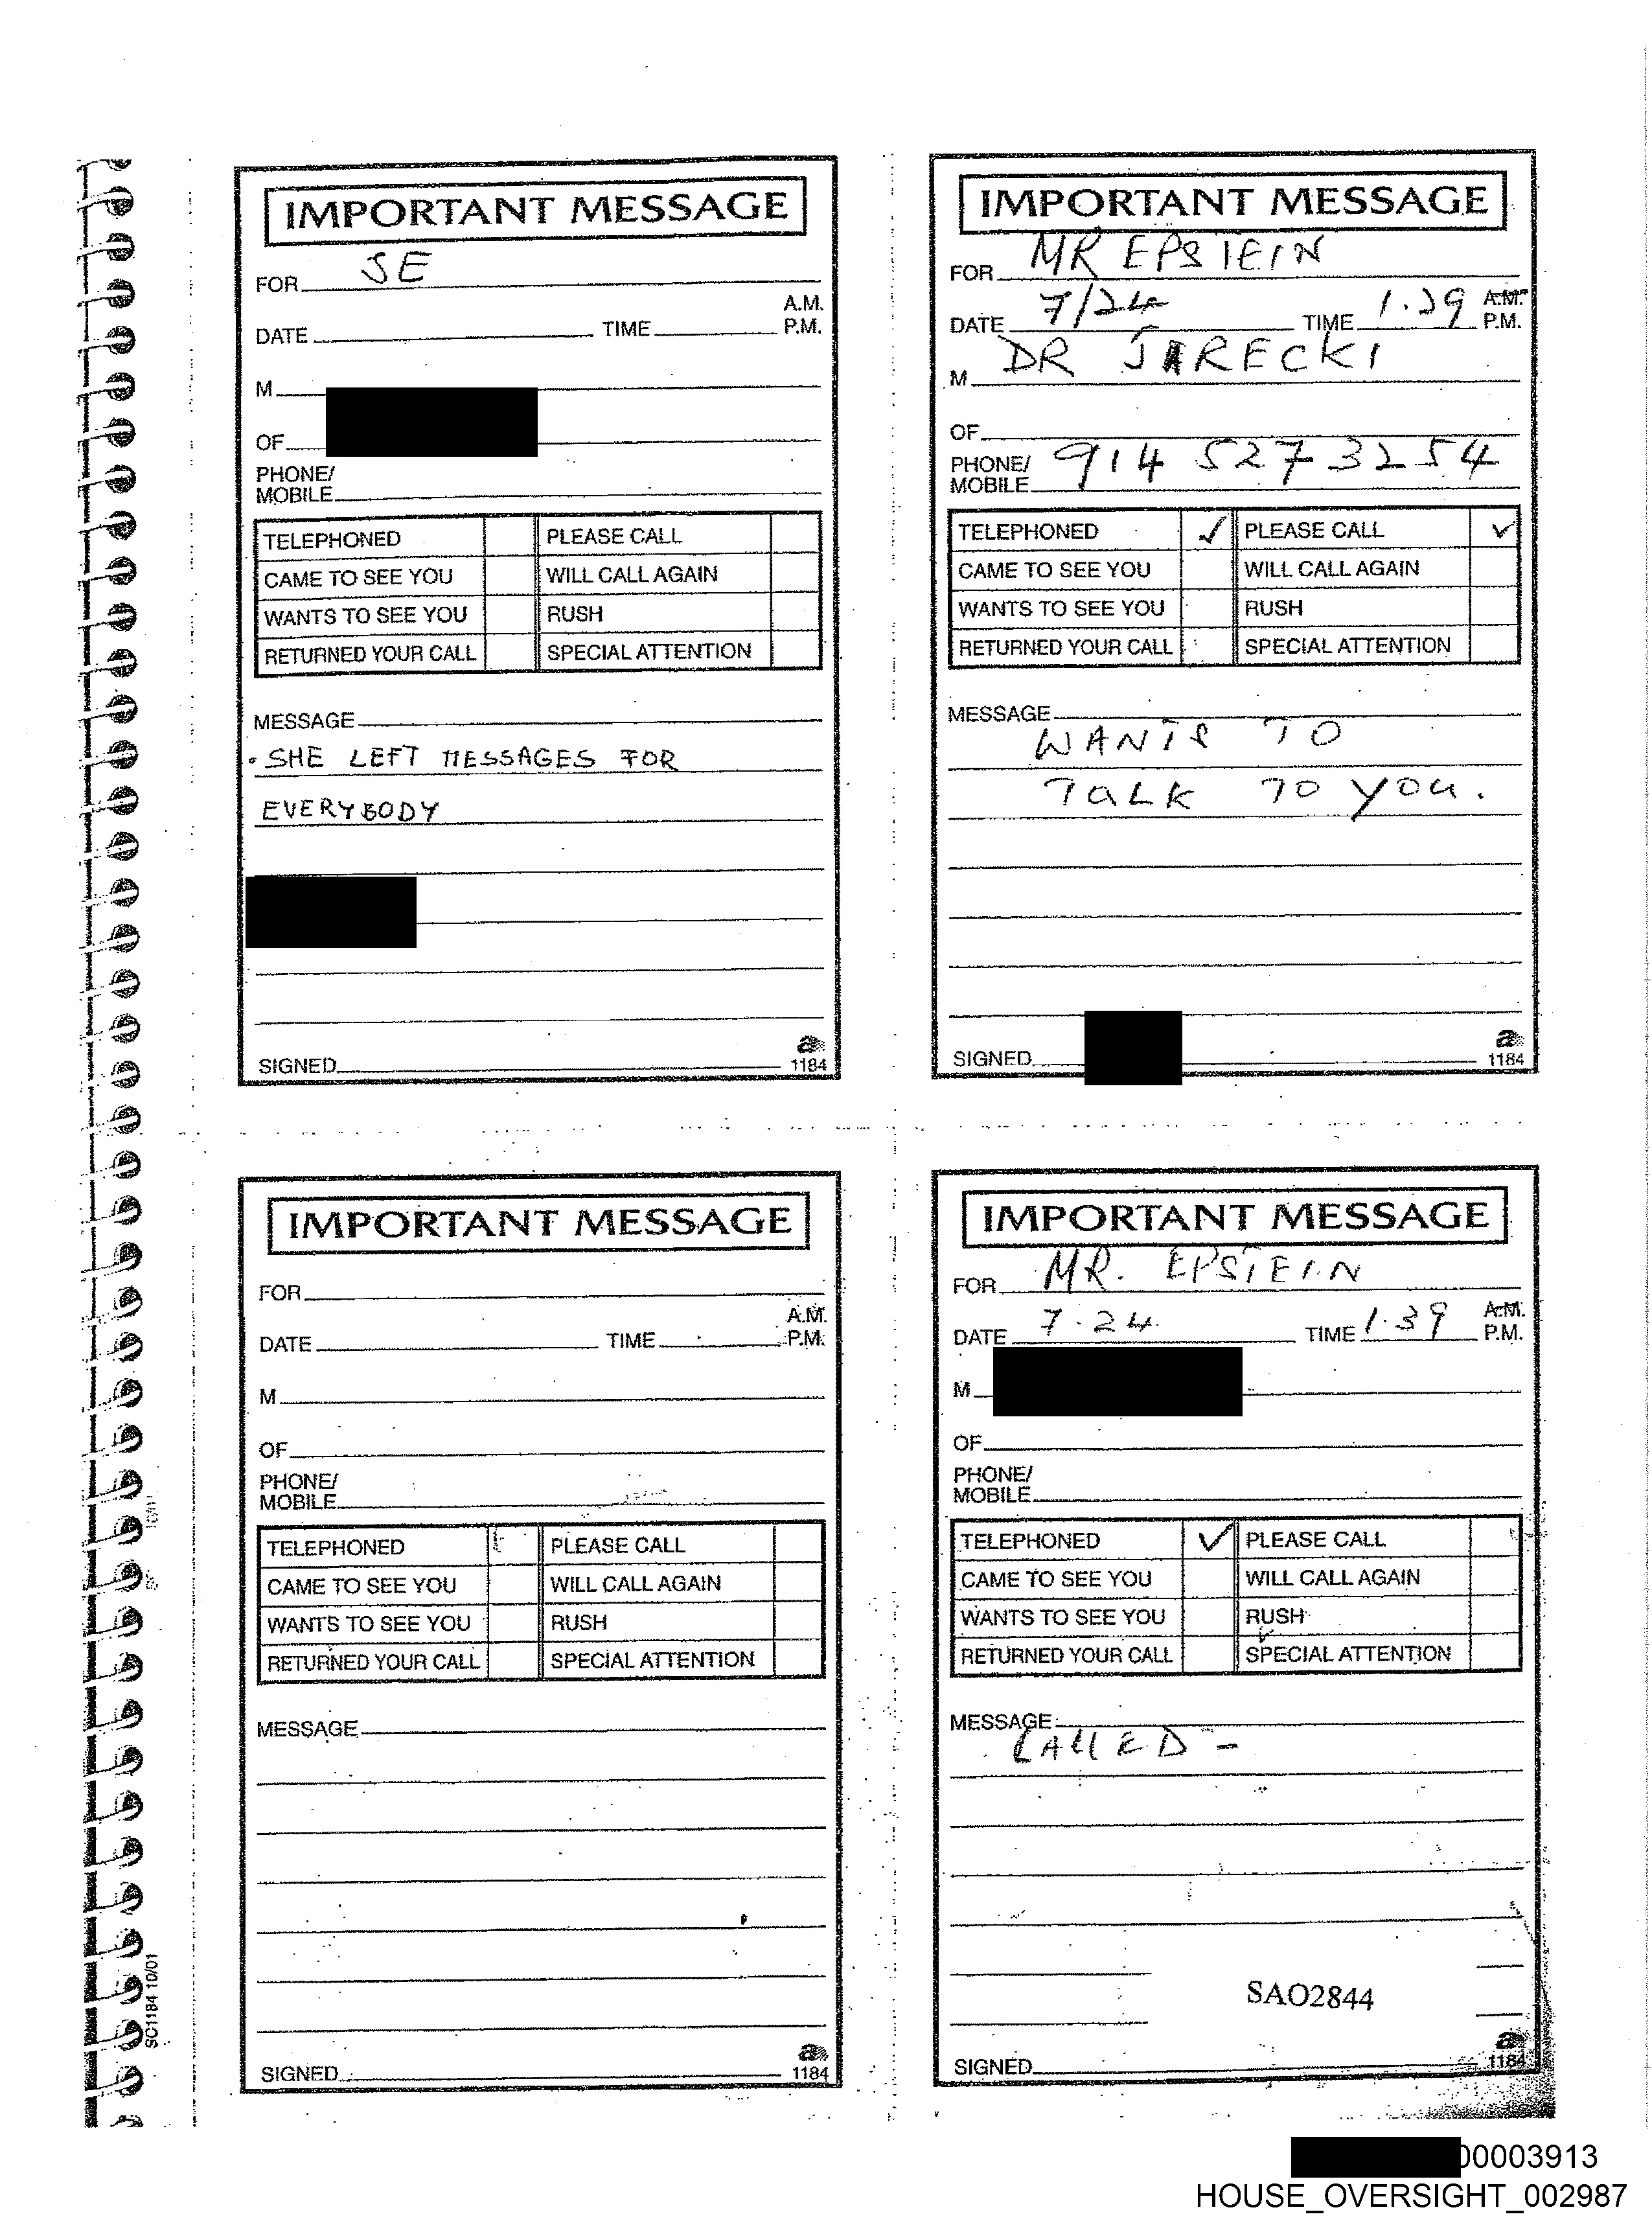 IMPORTANT MESSAGE
FOR JE
A.M.
DATE TIME P.M.
M
OF
PHONE/
MOBILE
TELEPHONED PLEASE CALL
CAME TO SEE YOU WILL CALL AGAIN
WANTS TO SEE YOU RUSH
RETURNED YOUR CALL SPECIAL ATTENTION
MESSAGE
SHE LEFT MESSAGES FOR
EVERYBODY
SIGNED
a
1184
IMPORTANT MESSAGE
FOR MR EPSTEIN
DATE 7/24 TIME 1.29 A.M.
P.M.
M DR JARECKI
OF
PHONE/
MOBILE 914 527 3254
TELEPHONED ✓ PLEASE CALL ✓
CAME TO SEE YOU WILL CALL AGAIN
WANTS TO SEE YOU RUSH
RETURNED YOUR CALL SPECIAL ATTENTION
MESSAGE
WANTS TO
TALK TO YOU.
SIGNED
a
1184
IMPORTANT MESSAGE
FOR
A.M.
DATE TIME P.M.
M
OF
PHONE/
MOBILE
TELEPHONED PLEASE CALL
CAME TO SEE YOU WILL CALL AGAIN
WANTS TO SEE YOU RUSH
RETURNED YOUR CALL SPECIAL ATTENTION
MESSAGE
SIGNED
a
1184
SC1184 10/01
IMPORTANT MESSAGE
FOR MR. EPSTEIN
DATE 7.24. TIME 1.39 A.M.
P.M.
M
OF
PHONE/
MOBILE
TELEPHONED ✓ PLEASE CALL
CAME TO SEE YOU WILL CALL AGAIN
WANTS TO SEE YOU RUSH
RETURNED YOUR CALL SPECIAL ATTENTION
MESSAGE
CALLED -
SAO2844
SIGNED
a
1184
00003913
HOUSE_OVERSIGHT_002987